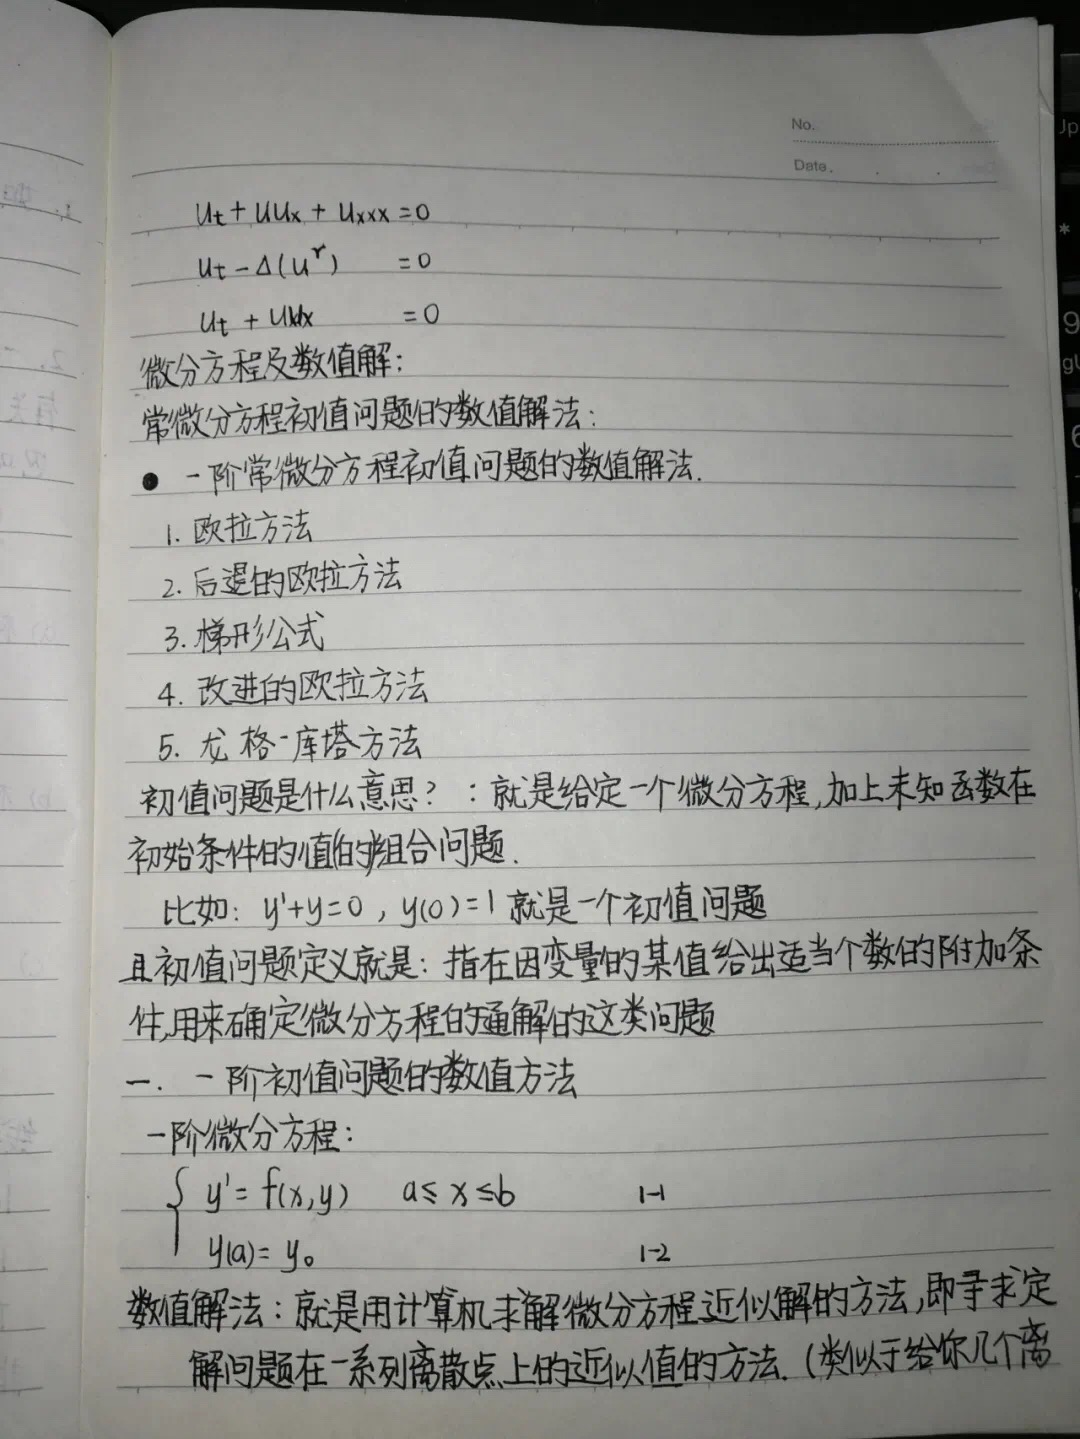 No.
Date.
Ut + UUx + Uxxx = 0
Ut - Δ(u^r) = 0
Ut + UUx = 0
微分方程及数值解:
常微分方程初值问题的数值解法:
● 一阶常微分方程初值问题的数值解法.
1. 欧拉方法
2. 后退的欧拉方法
3. 梯形公式
4. 改进的欧拉方法
5. 龙格-库塔方法
初值问题是什么意思? : 就是给定一个微分方程,加上未知函数在
初始条件的值的组合问题.
比如: y'+y=0, y(0)=1 就是一个初值问题
且初值问题定义就是: 指在因变量的某值给出适当个数的附加条
件,用来确定微分方程的通解的这类问题
一. 一阶初值问题的数值方法
一阶微分方程:
{ y' = f(x,y) a ≤ x ≤ b 1-1
y(a) = y₀ 1-2
数值解法: 就是用计算机求解微分方程近似解的方法,即寻求定
解问题在一系列离散点上的近似值的方法. (类似于给你几个离